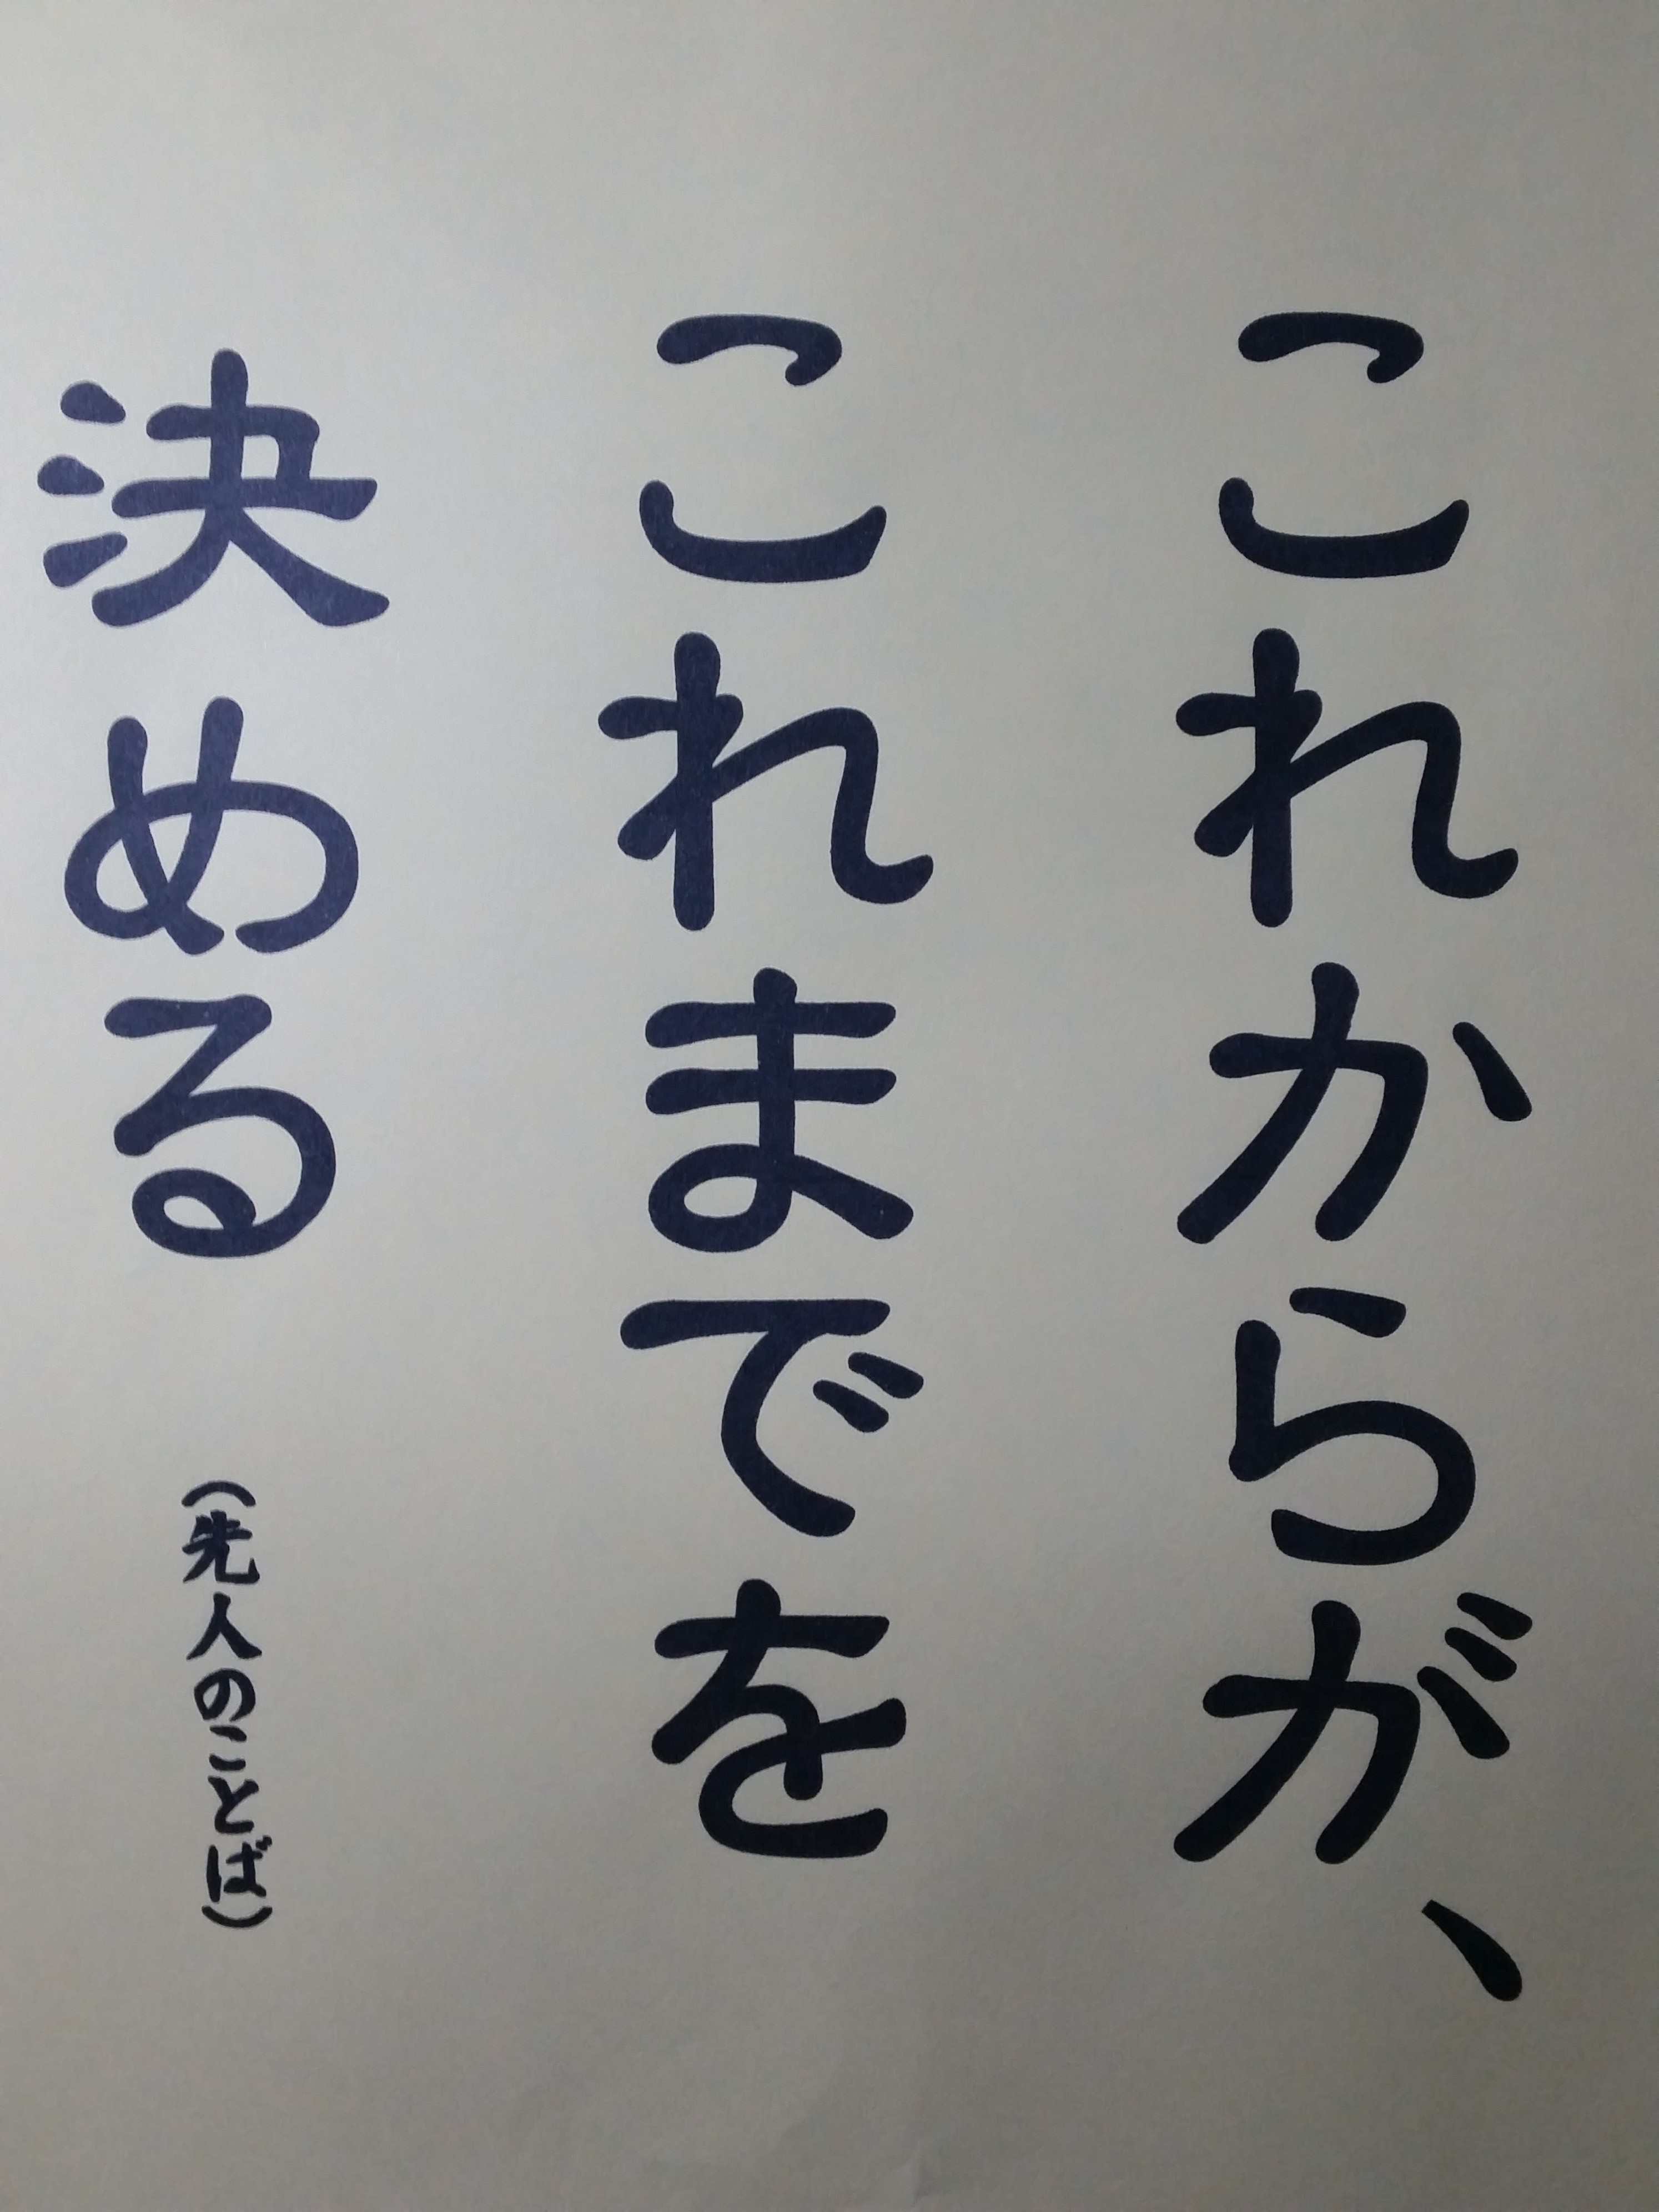 これからが、
これまでを
決める
（先人のことば）